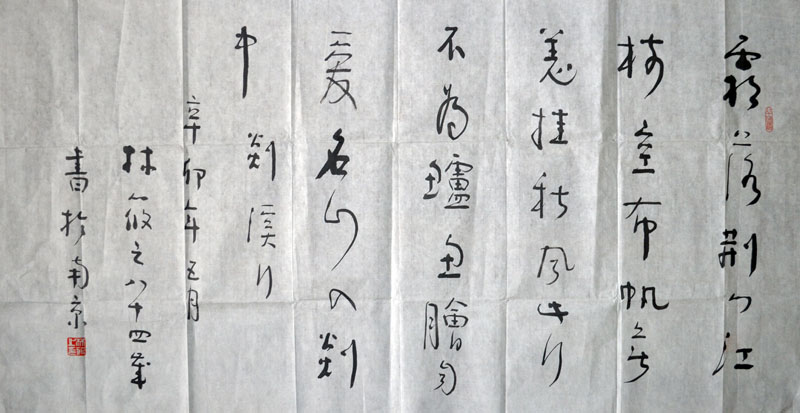 霜落荆门江
树空布帆無
恙挂秋風此行
不為鱸魚膾自
愛名山入剡
中 剡溪行
辛卯年五月
林筱之八十四歲
書於南京